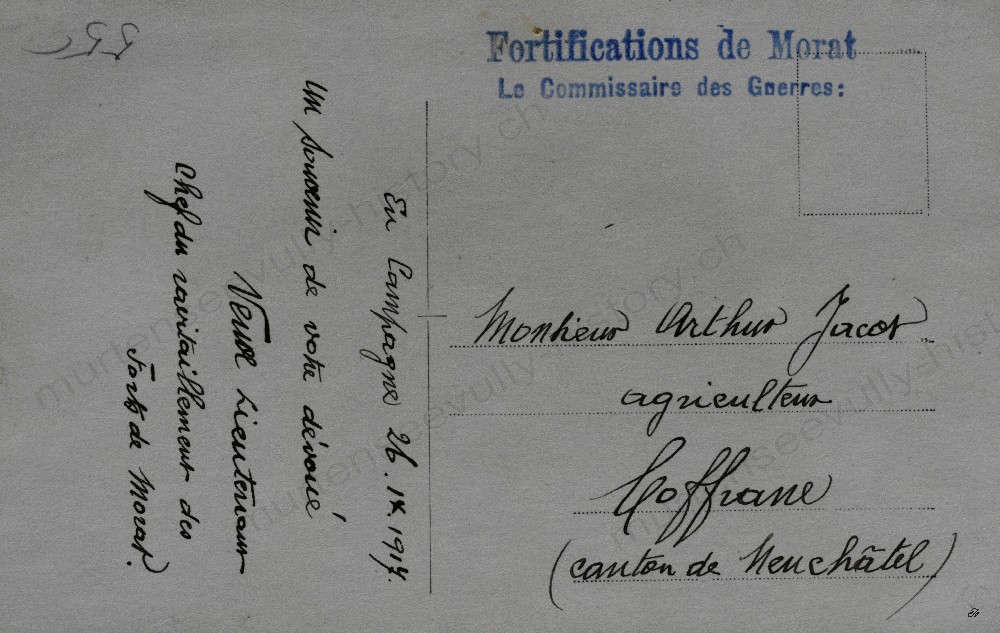 Fortifications de Morat
Le Commissaire des Guerres:
En Campagne 26. IX. 1917.
Un souvenir de votre dévoué
Lieutenant
Chef du ravitaillement des
Forts de Morat.
Monsieur Arthur Jacot
agriculteur
Coffrane
(canton de Neuchâtel)
murtenseevully-history.ch
murtenseevully-history.ch
murtenseevully-history.ch